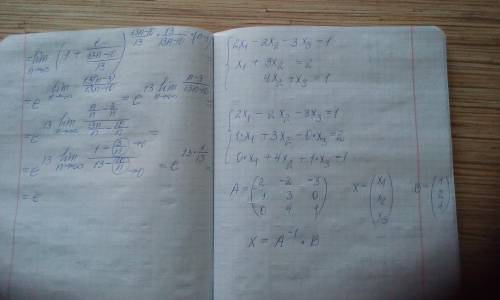 = lim n→∞ (1 + 1/((13n-10)/13))^((13n-10)/13 · 13/(13n-10) · (n-3)) =
= e^(lim n→∞ 13(n-3)/(13n-10)) = e^(13 lim n→∞ (n-3)/(13n-10)) =
= e^(13 lim n→∞ (n/n - 3/n)/(13n/n - 10/n)) =
= e^(13 lim n→∞ (1 - 3/n →0)/(13 - 10/n →0)) = e^(13 · 1/13) =
= e
{ 2x1 - 2x2 - 3x3 = 1
x1 + 3x2 = 2
4x2 + x3 = 1
{ 2x1 - 2x2 - 3x3 = 1
1·x1 + 3x2 - 0·x3 = 2
0·x1 + 4x2 + 1·x3 = 1
A = (2 -2 -3; 1 3 0; 0 4 1) X = (x1; x2; x3) B = (1; 2; 1)
X = A^-1 · B